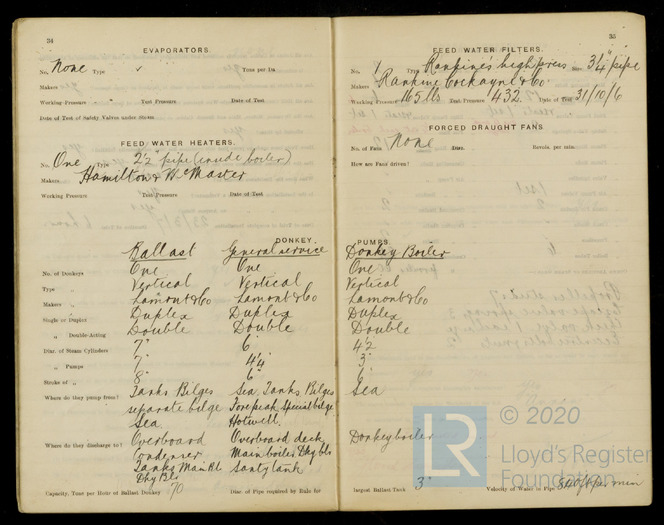 34
EVAPORATORS.
No. None Type ✓ Tons per Day
Makers
Working Pressure Test Pressure Date of Test
Date of Test of Safety Valves under Steam
FEED WATER HEATERS.
No. One Type 2½" pipe (inside boiler)
Makers Hamilton & McMaster
Working Pressure Test Pressure Date of Test
DONKEY
Ballast General service
No. of Donkeys One One
Type „ Vertical Vertical
Makers „ Lamont & Co Lamont & Co
Single or Duplex Duplex Duplex
„ Double-Acting Double Double
Diar. of Steam Cylinders 7" 6"
„ Pumps 7" 4¼"
Stroke of „ 8" 6"
Where do they pump from? Tanks Bilges Sea Tanks Bilges
separate bilge Forepeak Special bilge
Sea Hotwell
Where do they discharge to? Overboard Overboard deck
Condenser Main boiler Dky bls
Tanks Main Bl
Dky Bls Santy tank
Capacity, Tons per Hour of Ballast Donkey 70 Diar. of Pipe required by Rule for
35
FEED WATER FILTERS.
No. 1 Type Rankine's high press Size 3¼" pipe
Makers Rankine Cockayne & Co
Working Pressure 165 lbs Test Pressure 432 Date of Test 31/10/6
FORCED DRAUGHT FANS.
No. of Fans None Diar. Revols. per min.
How are Fans driven?
PUMPS.
Donkey Boiler
One
Vertical
Lamont & Co
Duplex
Double
4½
3"
6"
Sea
Donkey boiler
largest Ballast Tank 3" Velocity of Water in Pipe 540 ft per min
LR
© 2020
Lloyd's Register
Foundation